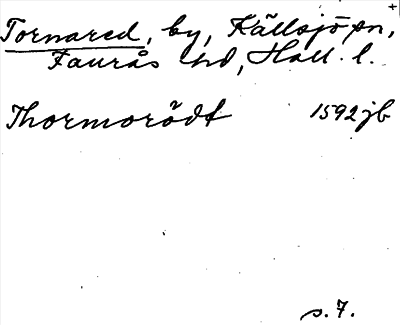 Tornared, by, Källsjö sn,
Faurås hd, Hall. l.
Thormorödt 1592 jb
s. 7.